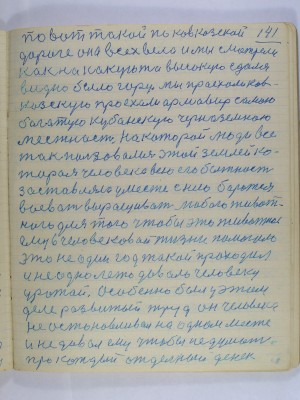 141
по вот такой по ковкозской
дороге она всех вела и мы смотрели
как на какуюто высокую сдаля
видно было гору мы проехали ков-
козскую проехали армавир самою
богатую кубанскую черноземною
местност, на каторой люди все
так ползовался этой землей ко-
торая человека всю его бытност
заставляла уместе с нею боротся
воеват выращиват любого живот-
ного для того чтобы это животное
ему в человековай жизни помогало
это не один год такой проходил
и не одно лето довало человеку
урожай, особенно был у этим
деле развитый труд он человека
не остоновливал на одном месте
и не довал ему чтобы не думат,
про каждый отделный денек